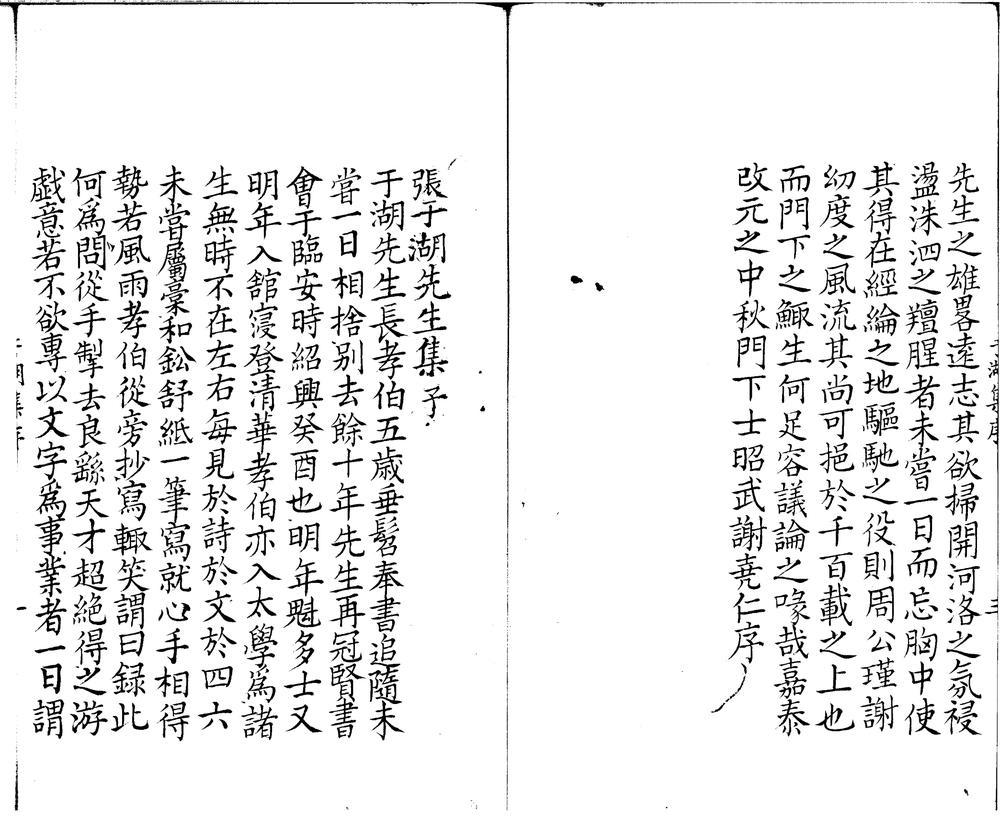 先生之雄畧遠志其欲掃開河洛之氛祲
盪洙泗之羶腥者未嘗一日而忘胸中使
其得在經綸之地驅馳之役則周公瑾謝
幼度之風流其尚可挹於千百載之上也
而門下之鯫生何足容議論之喙哉嘉泰
改元之中秋門下士昭武謝堯仁序
張于湖先生集予
于湖先生長孝伯五歲垂髫奉書追隨未
嘗一日相捨别去餘十年先生再冠賢書
會于臨安時紹興癸酉也明年魁多士又
明年入舘寖登清華孝伯亦入太學爲諸
生無時不在左右每見於詩於文於四六
未嘗屬稾和鈆舒紙一筆寫就心手相得
勢若風雨孝伯從旁抄寫輙笑謂曰録此
何爲問從手掣去良繇天才超絶得之游
戯意若不欲專以文字爲事業者一日謂